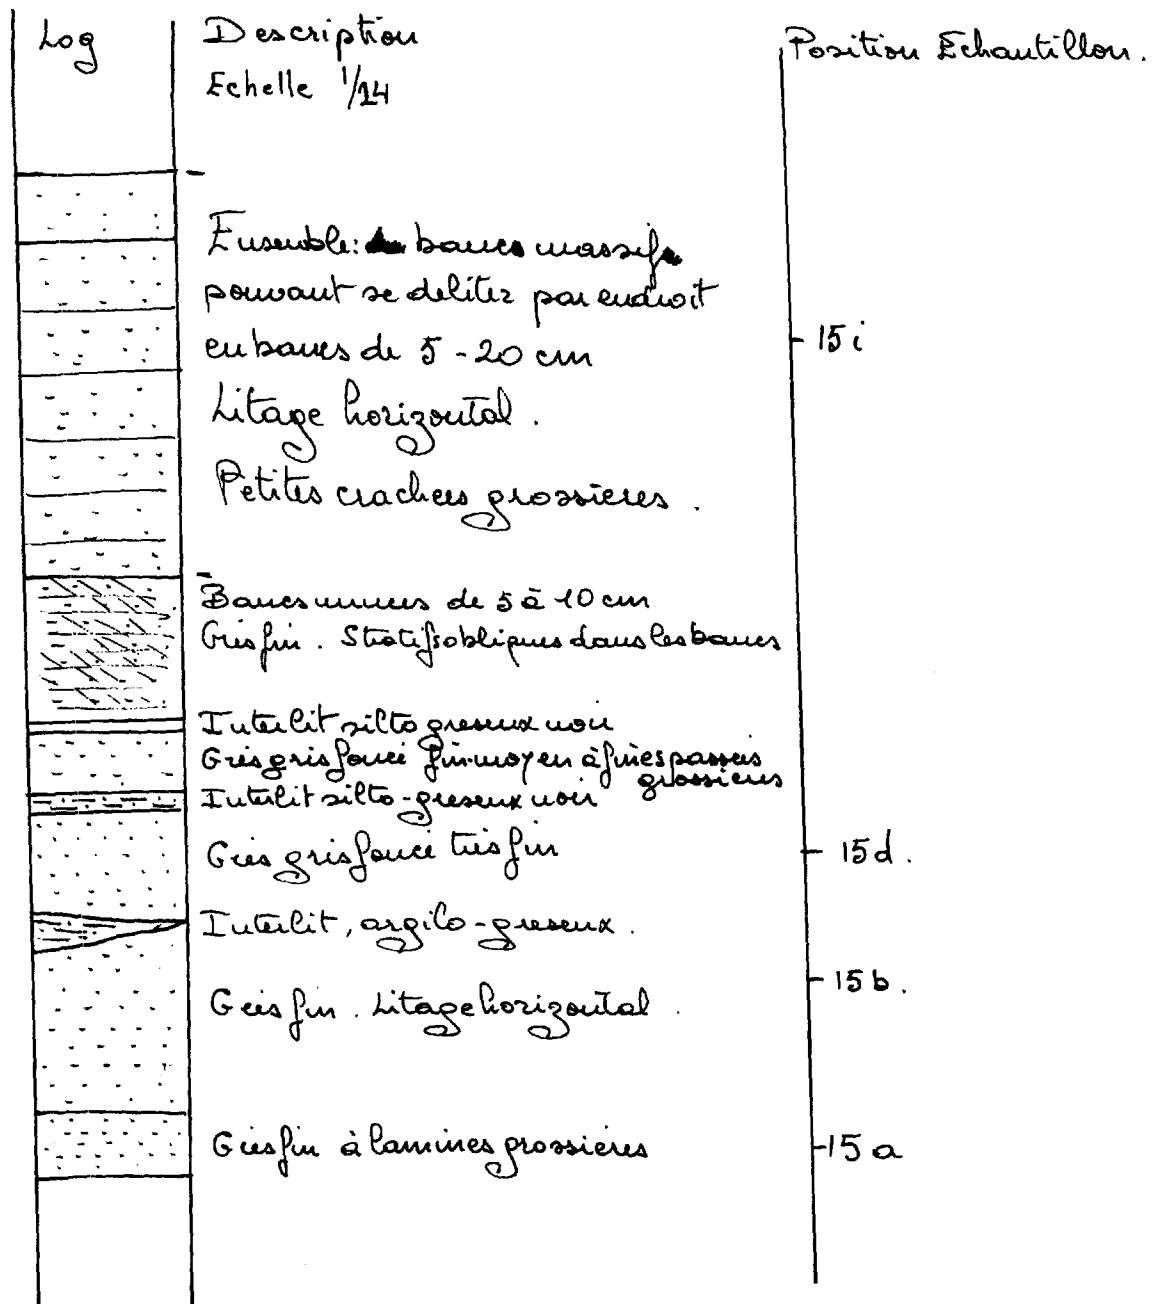 Log
Description
Position Echantillon.
Echelle 1/14
Ensemble: bancs massifs
pouvant se deliter par endroit
en bancs de 5-20 cm
15i
Litage horizontal.
Petites crachees grossieres.
Bancs minces de 5 à 10 cm
Gres fin. Stratifs obliques dans les bancs
Interlit silto greseux noir
Gres gris foncé fin-moyen à fines passées
grossieres
Interlit silto-greseux noir
Gres gris foncé très fin
15d.
Interlit, argilo-greseux.
15b.
Gres fin. Litage horizontal.
Gres fin à lamines grossières
15a